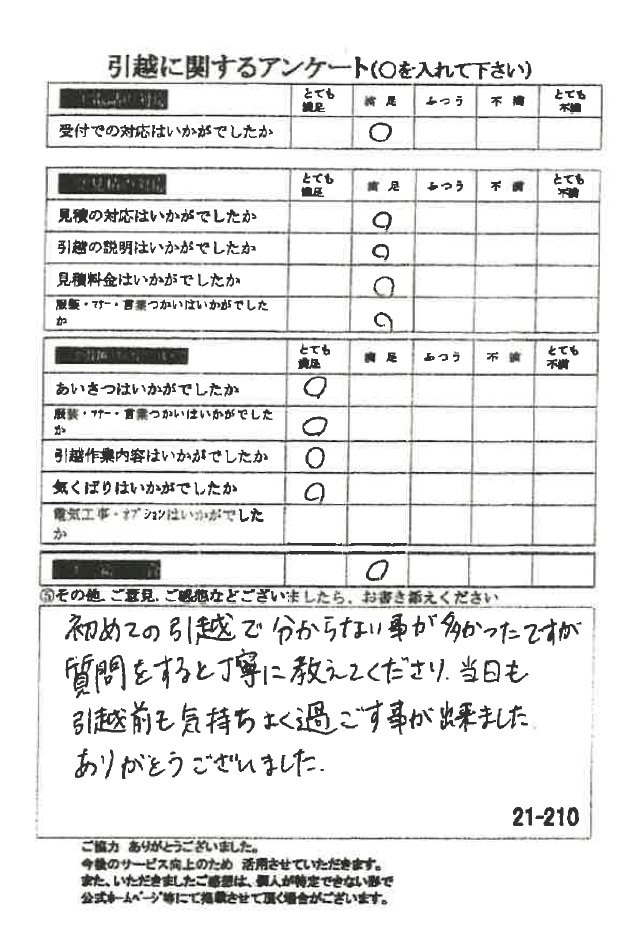 引越に関するアンケート(○を入れて下さい)
とても満足 満足 ふつう 不満 とても不満
受付での対応はいかがでしたか ○
とても満足 満足 ふつう 不満 とても不満
見積の対応はいかがでしたか ○
引越の説明はいかがでしたか ○
見積料金はいかがでしたか ○
服装・マナー・言葉つかいはいかがでした
か ○
とても満足 満足 ふつう 不満 とても不満
あいさつはいかがでしたか ○
服装・マナー・言葉つかいはいかがでした
か ○
引越作業内容はいかがでしたか ○
気くばりはいかがでしたか ○
電気工事・オプションはいかがでした
か
○
⑤その他、ご意見、ご感想などございましたら、お書き添えください
初めての引越で分からない事が多かったですが
質問をすると丁寧に教えてくださり、当日も
引越前も気持ちよく過ごす事が出来ました。
ありがとうございました。
21-210
ご協力 ありがとうございました。
今後のサービス向上のため 活用させていただきます。
また、いただきましたご感想は、個人が特定できない形で
公式ホームページ等にて掲載させて頂く場合がございます。